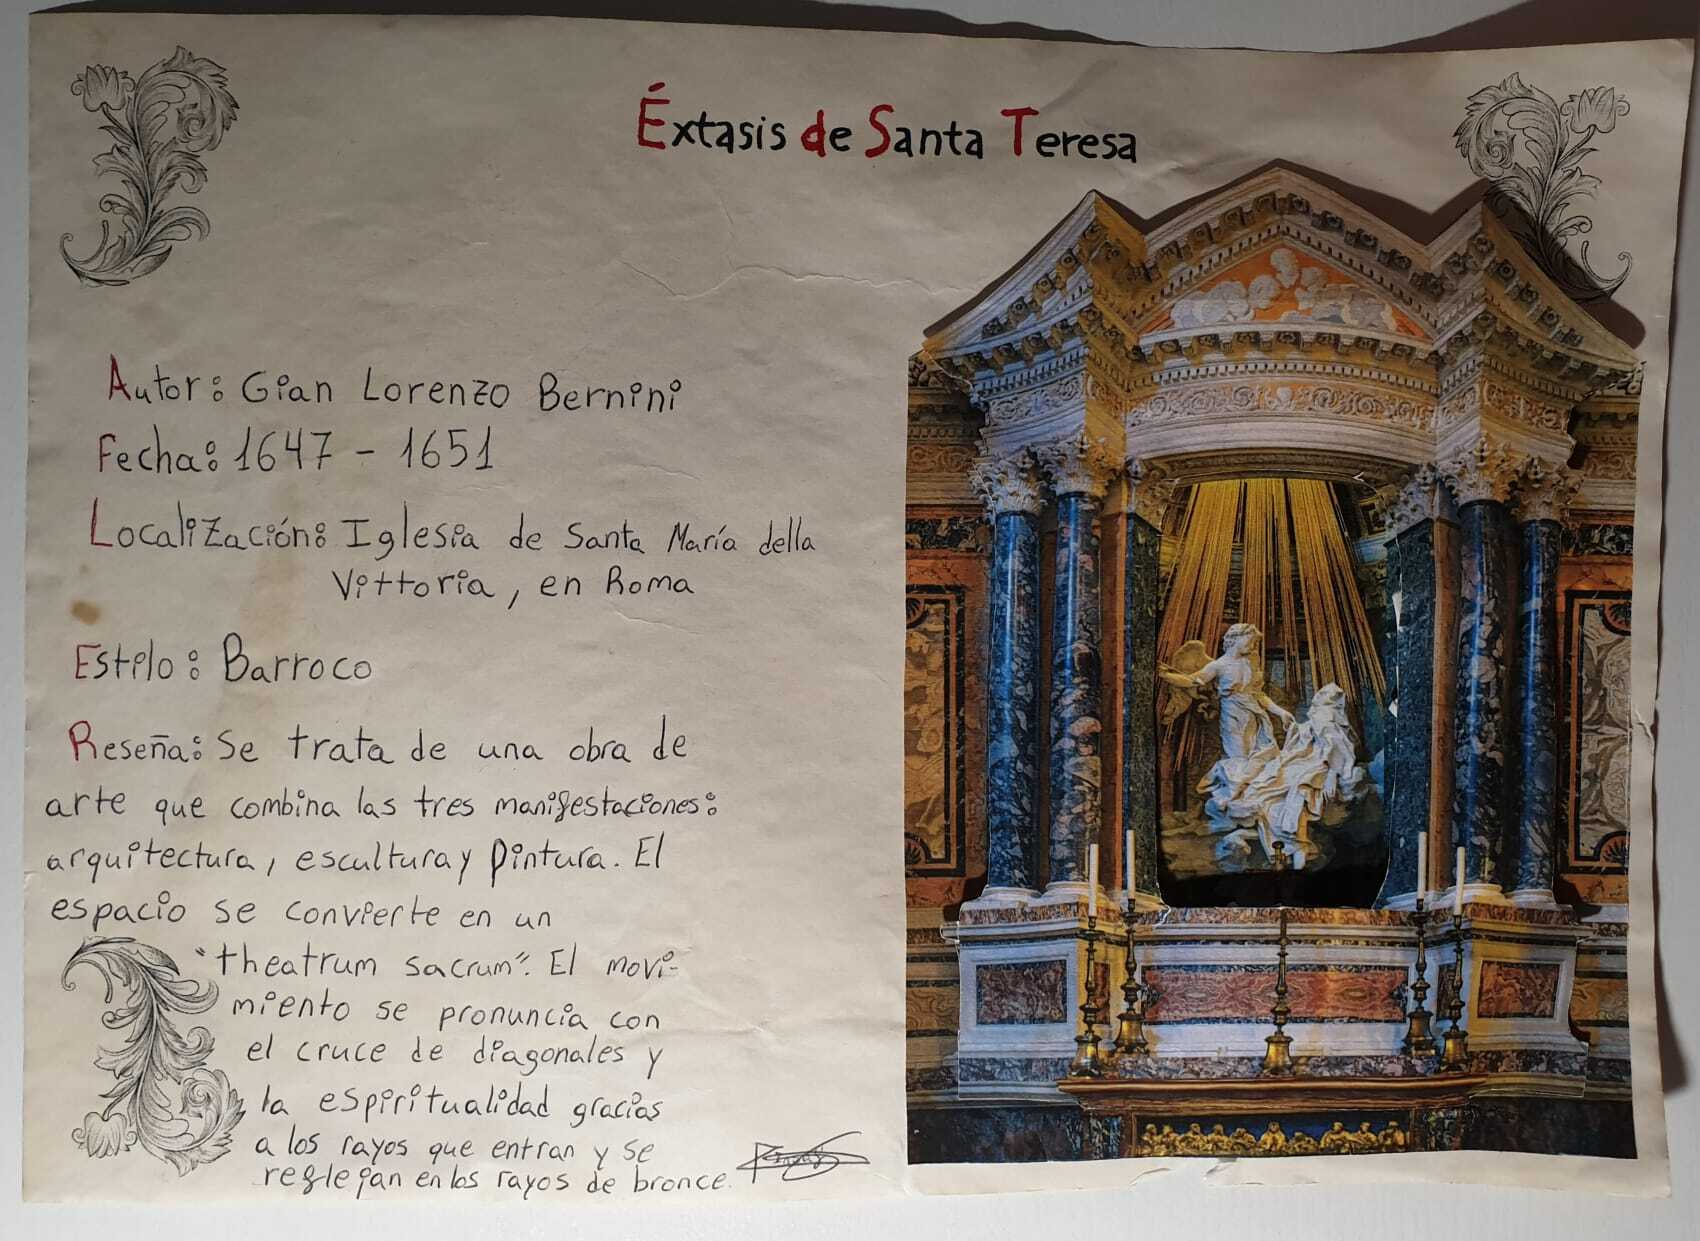 Éxtasis de Santa Teresa
Autor: Gian Lorenzo Bernini
Fecha: 1647 - 1651
Localización: Iglesia de Santa María della
Vittoria, en Roma
Estilo: Barroco
Reseña: Se trata de una obra de
arte que combina las tres manifestaciones:
arquitectura, escultura y pintura. El
espacio se convierte en un
"theatrum sacrum". El movi-
miento se pronuncia con
el cruce de diagonales y
la espiritualidad gracias
a los rayos que entran y se
reflejan en los rayos de bronce.